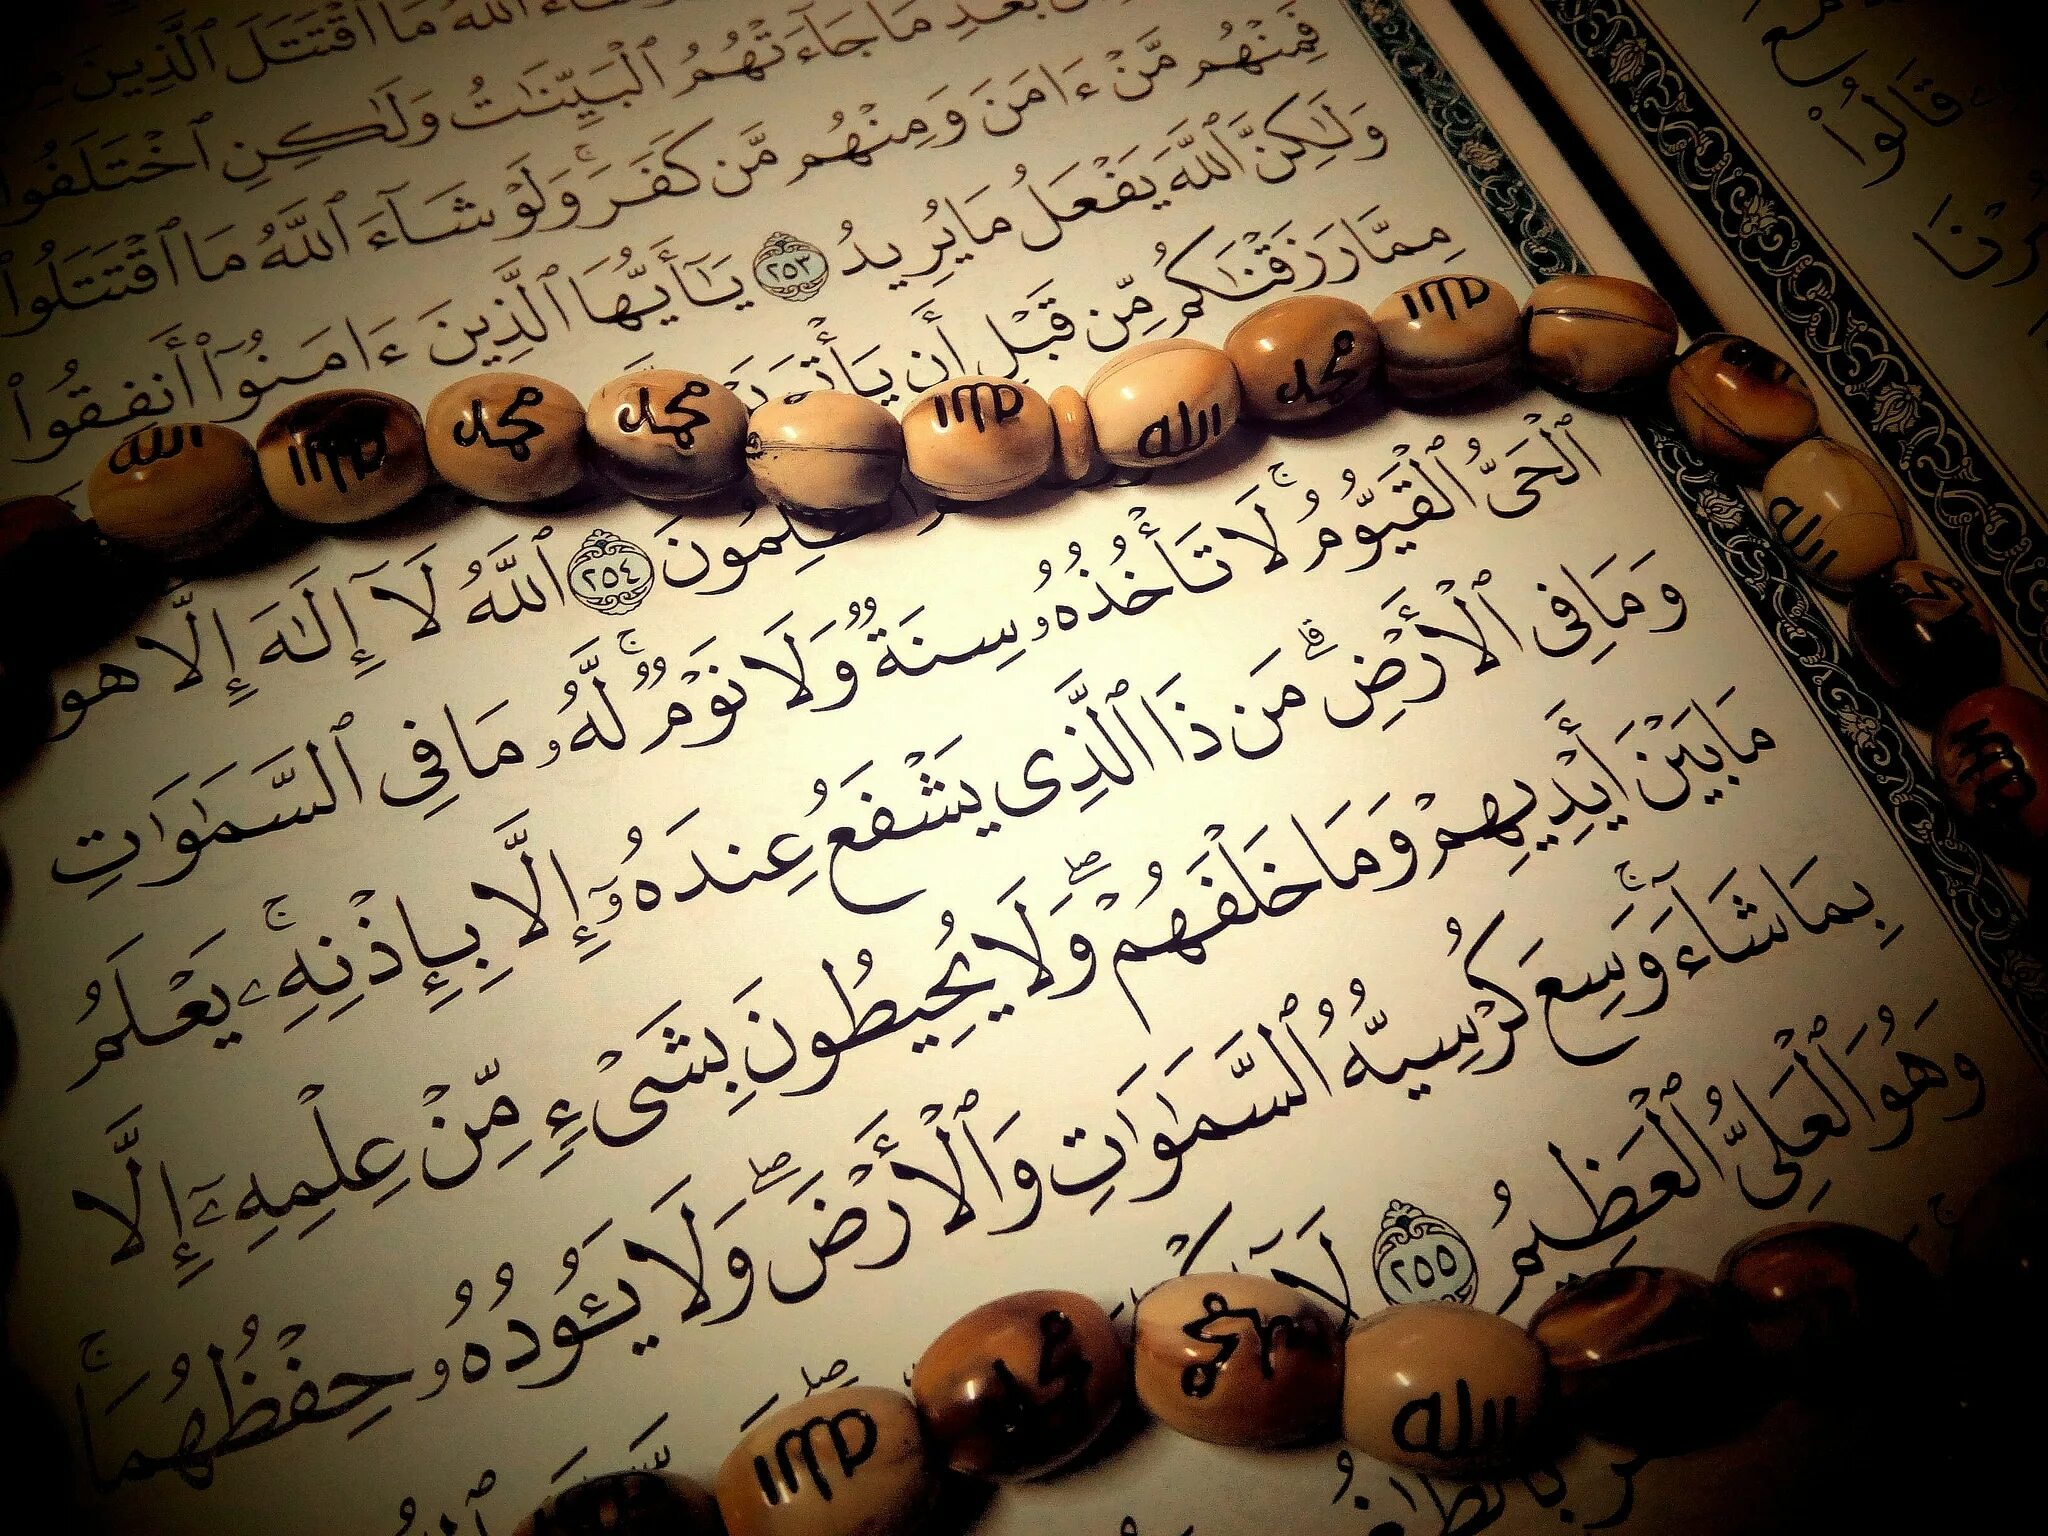 شَآءَ ٱللَّهُ مَا ٱقْتَتَلَ ٱلَّذِينَ
بَعْدِ مَا جَآءَتْهُمُ ٱلْبَيِّنَٰتُ وَلَٰكِنِ ٱخْتَلَفُوا۟
فَمِنْهُم مَّنْ ءَامَنَ وَمِنْهُم مَّن كَفَرَ ۚ وَلَوْ شَآءَ ٱللَّهُ مَا ٱقْتَتَلُوا۟
وَلَٰكِنَّ ٱللَّهَ يَفْعَلُ مَا يُرِيدُ ٢٥٣ يَٰٓأَيُّهَا ٱلَّذِينَ ءَامَنُوٓا۟ أَنفِقُوا۟
مِمَّا رَزَقْنَٰكُم مِّن قَبْلِ أَن
٢٥٤ ٱللَّهُ لَآ إِلَٰهَ إِلَّا هُوَ
ٱلْحَىُّ ٱلْقَيُّومُ ۚ لَا تَأْخُذُهُۥ سِنَةٌ وَلَا نَوْمٌ ۚ لَّهُۥ مَا فِى ٱلسَّمَٰوَٰتِ
وَمَا فِى ٱلْأَرْضِ ۗ مَن ذَا ٱلَّذِى يَشْفَعُ عِندَهُۥٓ إِلَّا بِإِذْنِهِۦ ۚ يَعْلَمُ
مَا بَيْنَ أَيْدِيهِمْ وَمَا خَلْفَهُمْ ۖ وَلَا يُحِيطُونَ بِشَىْءٍ مِّنْ عِلْمِهِۦٓ إِلَّا
بِمَا شَآءَ ۚ وَسِعَ كُرْسِيُّهُ ٱلسَّمَٰوَٰتِ وَٱلْأَرْضَ ۖ وَلَا يَـُٔودُهُۥ حِفْظُهُمَا ۚ
وَهُوَ ٱلْعَلِىُّ ٱلْعَظِيمُ ٢٥٥
قَالُوا۟
الله
الله
محمد
محمد
الله
الله
محمد
الله
الله
محمد
الله
الله
محمد
محمد
الله